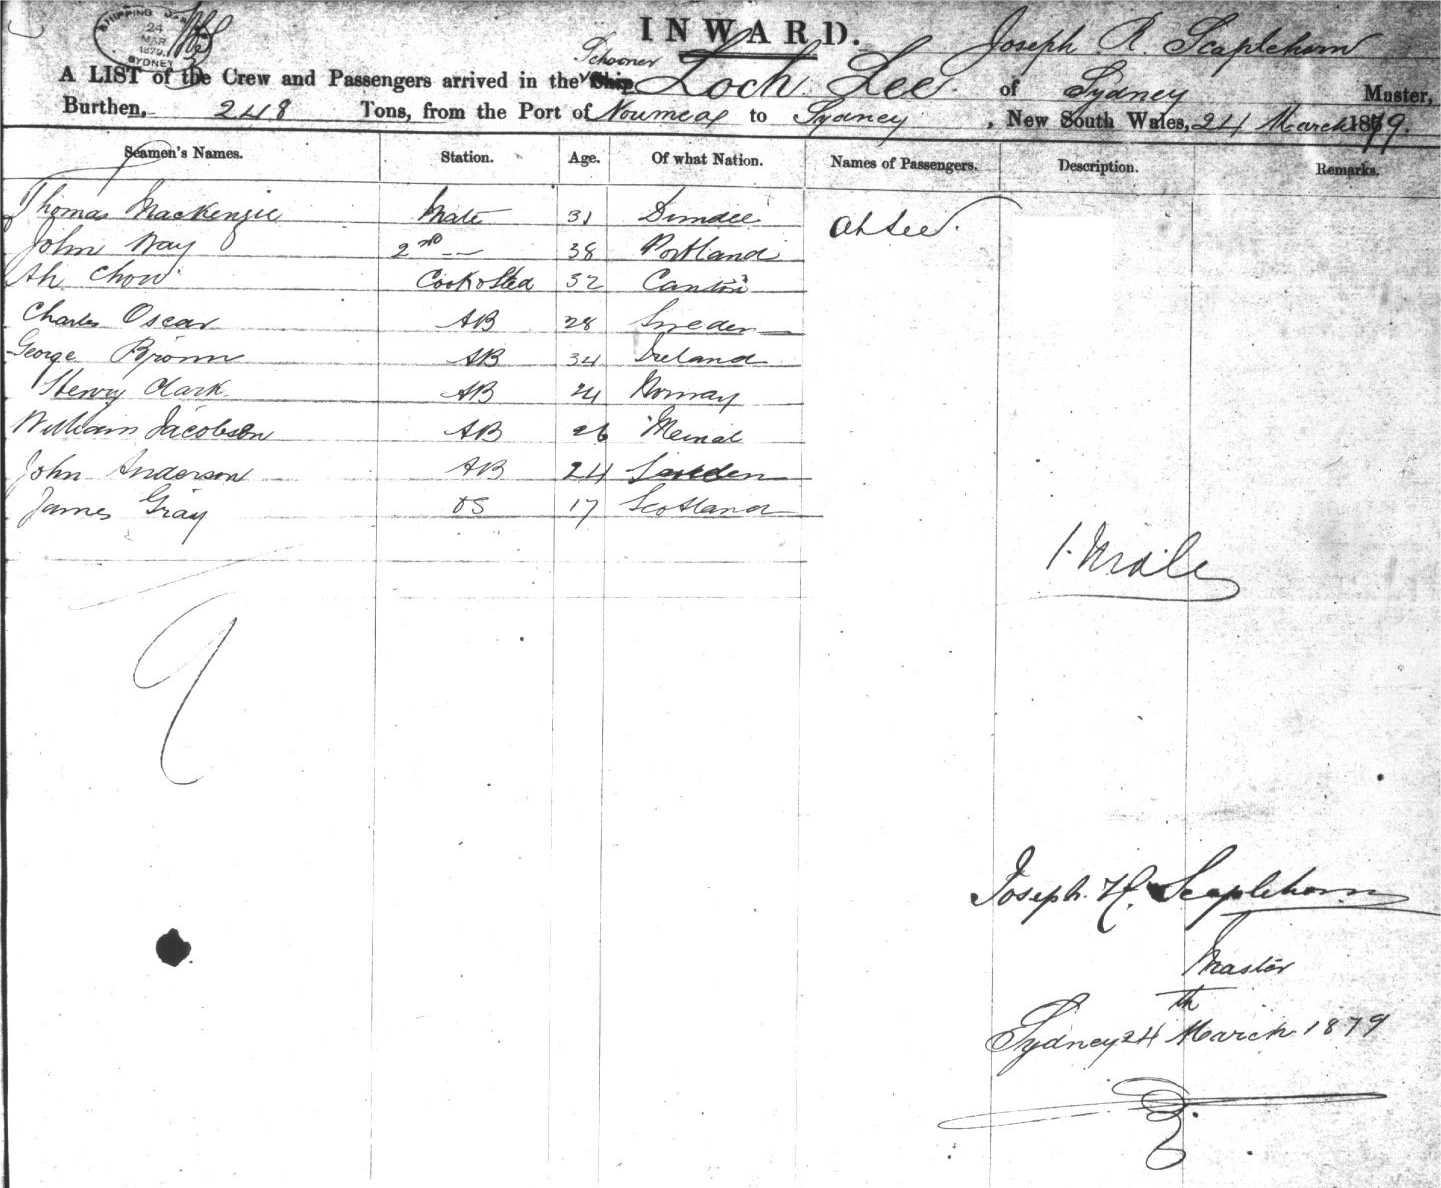 SHIPPING MAS
24
MAR
1879
SYDNEY
INWARD.
Joseph R. Scaplehorn
Schooner
A LIST of the Crew and Passengers arrived in the Ship Loch Lee of Sydney Master,
Burthen, 248 Tons, from the Port of Noumea to Sydney, New South Wales, 24 March 1879.
Seamen's Names. Station. Age. Of what Nation. Names of Passengers. Description. Remarks.
Thomas MacKenzie Mate 31 Dundee Ah Lee.
John Way 2nd -- 38 Portland
Ah Chow Cook & Sted 32 Canton
Charles Oscar AB 28 Sweden
George Brown AB 34 Ireland
Henry Clark AB 24 Norway
William Jacobson AB 26 Memel
John Anderson AB 24 Sweden
James Gray OS 17 Scotland
1. Male
9
Joseph. H. Scaplehorn
Master
Sydney 24th March 1879